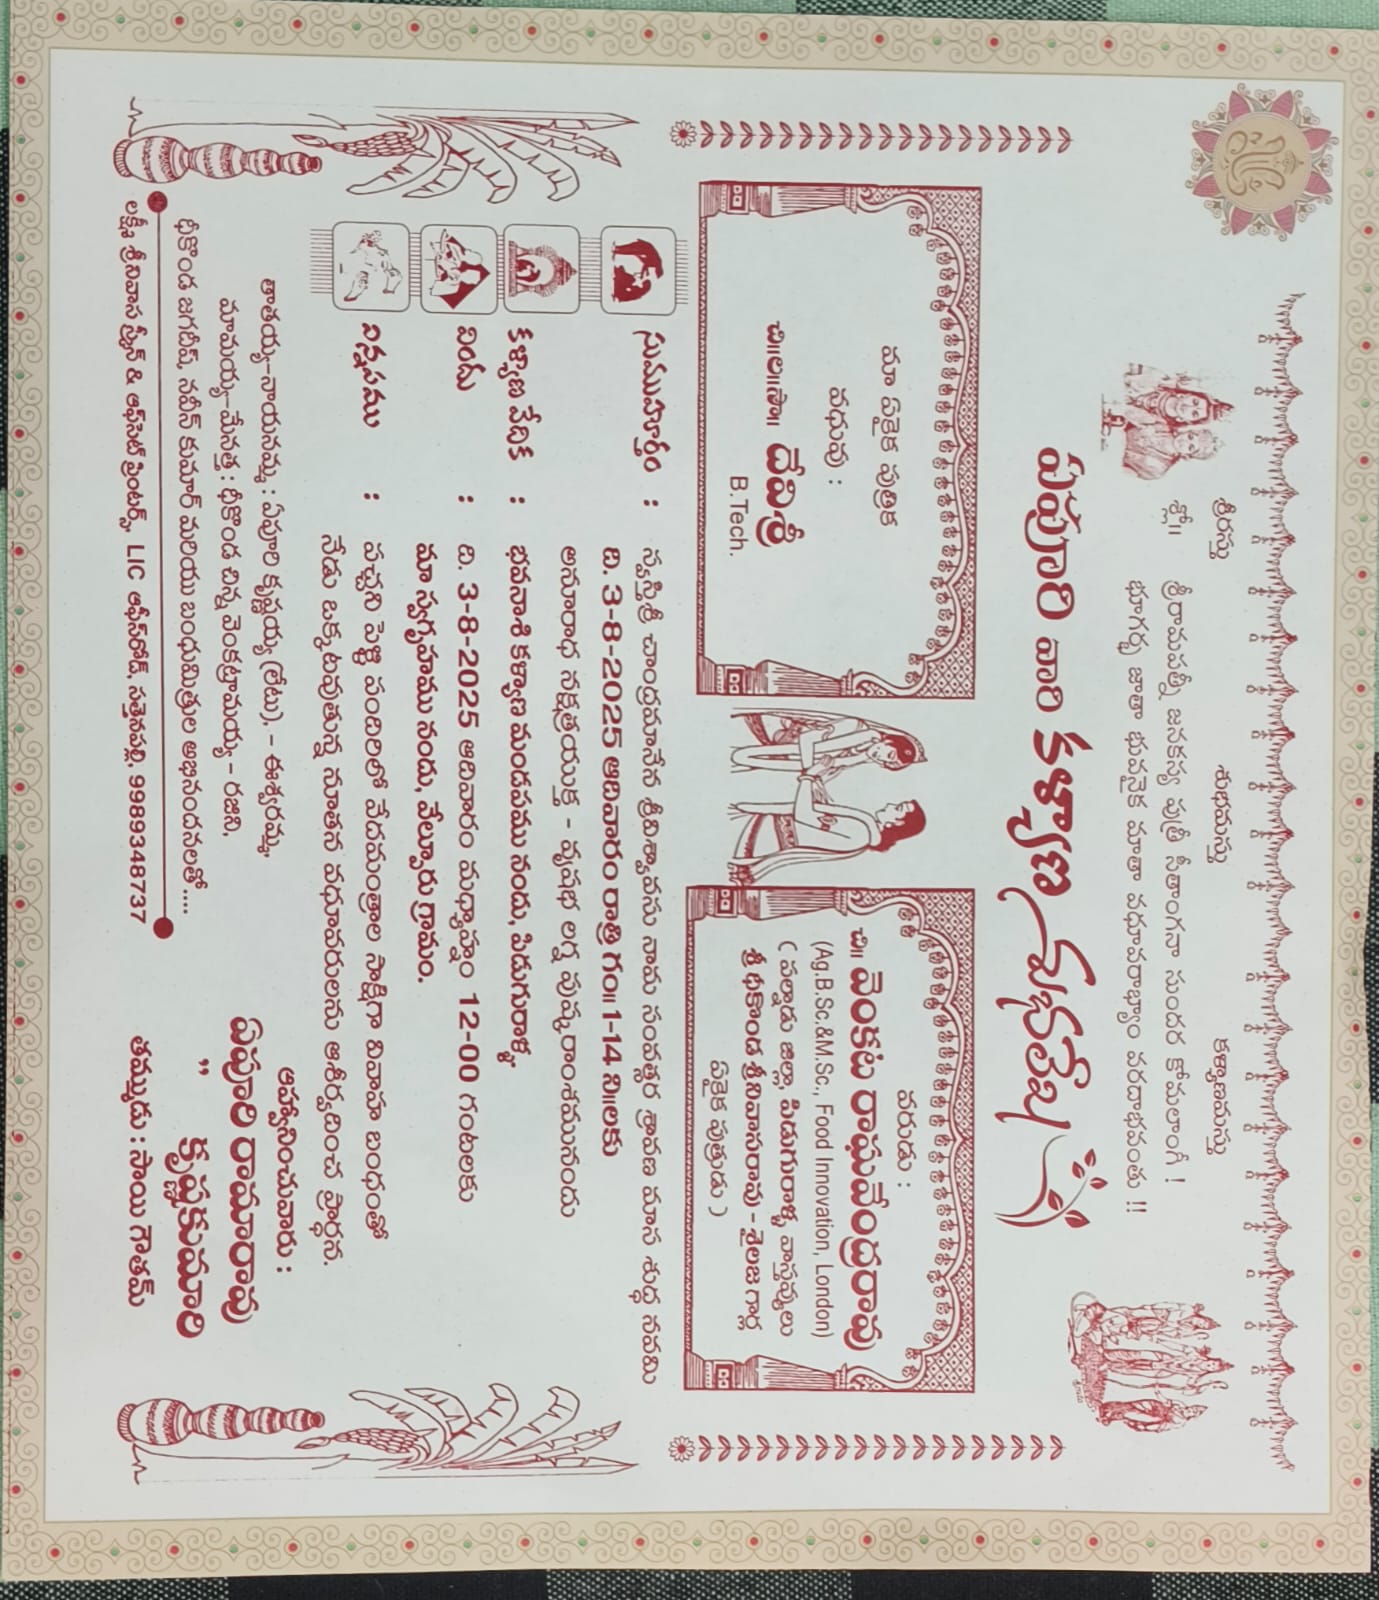 శ్రీరస్తు
శుభమస్తు
కళ్యాణమస్తు
శ్లో॥
శ్రీరామపత్నీ జనకస్య పుత్రీ సీతాంగనా సుందర కోమలాంగీ !
భూగర్భ జాతా భువనైక మాతా వధూవరాభ్యాం వరదాభవంతు !!
ఏపూరి వారి కళ్యాణ శుభలేఖ
మా ఏకైక పుత్రిక
వధువు :
చి॥ల॥సౌ॥ దేవిశ్రీ
B.Tech.
వరుడు :
చి॥ వెంకట రాఘవేంద్రరావు
(Ag.B.Sc.&M.Sc., Food Innovation, London)
( పల్నాడు జిల్లా, పిడుగురాళ్ళ వాస్తవ్యులు
శ్రీ ధీకొండ శ్రీనివాసరావు - శైలజ గార్ల
ఏకైక పుత్రుడు )
సుముహూర్తం : స్వస్తిశ్రీ చాంద్రమానేన శ్రీవిశ్వావసు నామ సంవత్సర శ్రావణ మాస శుద్ధ నవమి
ది. 3-8-2025 ఆదివారం రాత్రి గం॥ 1-14 ని॥లకు
అనూరాధ నక్షత్రయుక్త - వృషభ లగ్న పుష్కరాంశమునందు
కళ్యాణ వేదిక : భవనాశి కళ్యాణ మండపము నందు, పిడుగురాళ్ళ
విందు : ది. 3-8-2025 ఆదివారం మధ్యాహ్నం 12-00 గంటలకు
మా స్వగృహము నందు, వేల్పూరు గ్రామం.
విన్నపము : పచ్చని పెళ్లి పందిరిలో వేదమంత్రాల సాక్షిగా వివాహ బంధంతో
నేడు ఒక్కటవుతున్న నూతన వధూవరులను ఆశీర్వదించ ప్రార్థన.
తాతయ్య-నాయనమ్మ : ఏపూరి కృష్ణయ్య (లేటు), - ఈశ్వరమ్మ,
మామయ్య-మేనత్త : ధీకొండ చిన్న వెంకట్రామయ్య - రజిని,
ధీకొండ జగదీష్, నవీన్ కుమార్ మరియు బంధుమిత్రుల అభినందనలతో....
ఆహ్వానించువారు :
ఏపూరి రామారావు
" కృష్ణకుమారి
తమ్ముడు : సాయి గౌతమ్
లక్ష్మీ శ్రీనివాస స్క్రీన్ & ఆఫ్‌సెట్ ప్రింటర్స్, LIC ఆఫీస్‌రోడ్, సత్తెనపల్లి. 9989348737